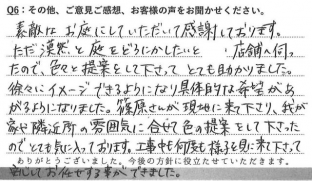 Q6：その他、ご意見ご感想、お客様の声をお聞かせください。
素敵なお庭にしていただいて感謝しております。
ただ漠然と庭をどうにかしたいと 店舗へ伺っ
たので、色々と提案をして下さって とても助かりました。
徐々にイメージできるようになり具体的な希望があ
がるようになりました。篠原さんが現地に来て下さり、我が
家や隣近所の雰囲気に合せて色の提案をして下さった
のでとても気に入っております。工事中も何度も様子を見に来て下さって
ありがとうございました。今後の方針に役立たせていただきます。
安心してお任せする事ができました。